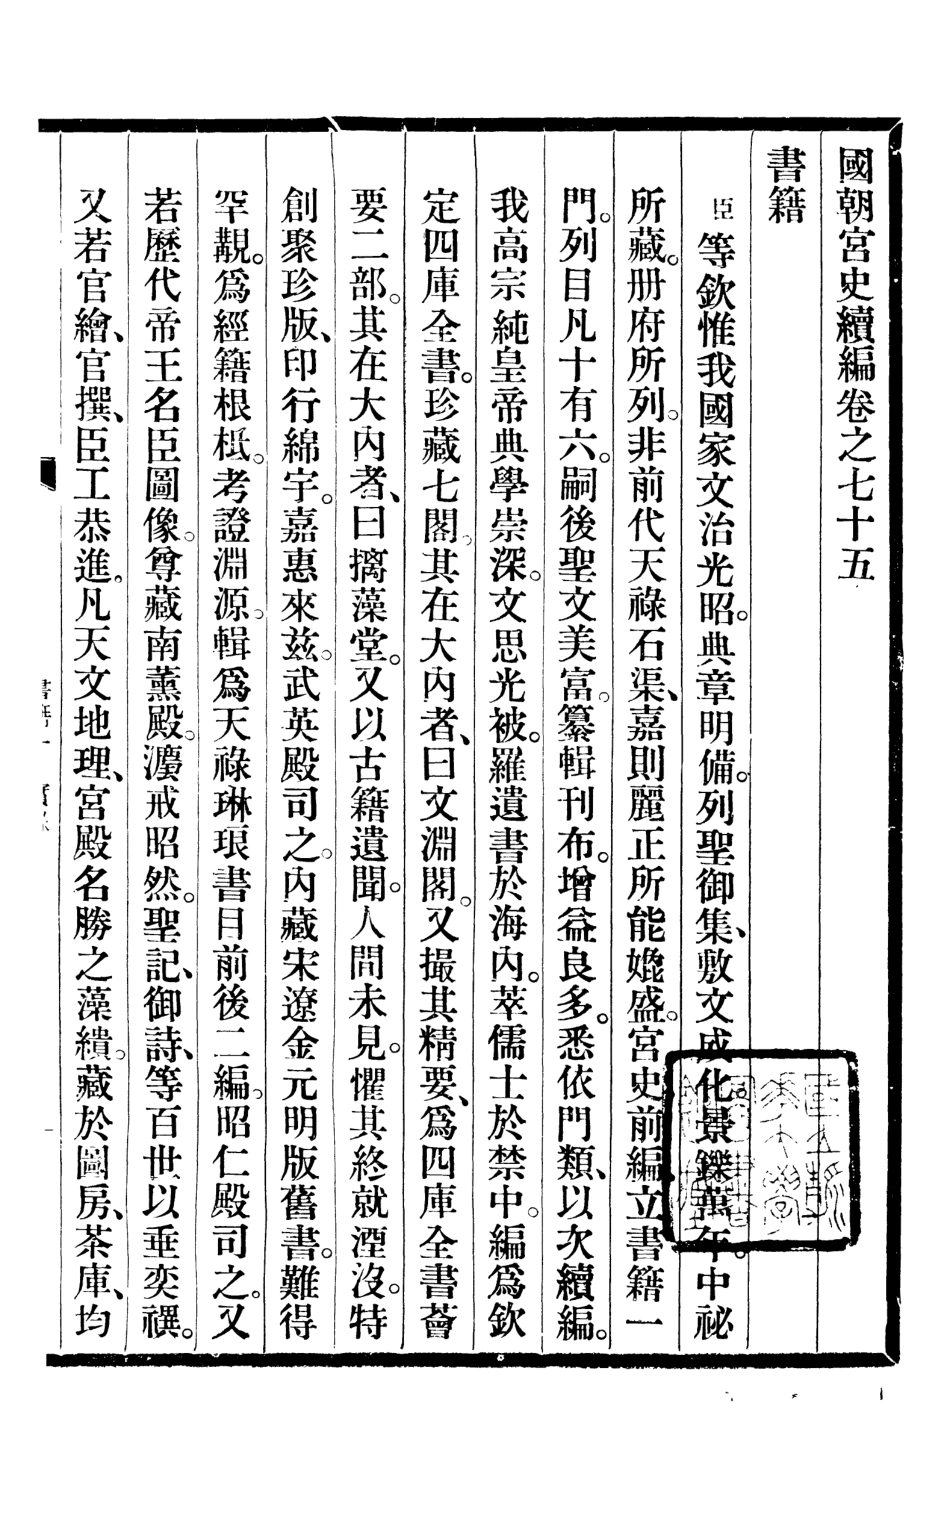 國朝宮史續編卷之七十五
書籍
臣等欽惟我國家文治光昭。典章明備。列聖御集、敷文成化。景鑠萬年。中祕
所藏。册府所列。非前代天祿石渠、嘉則麗正所能媲盛。宮史前編、立書籍一
門。列目凡十有六。嗣後聖文美富。纂輯刊布。增益良多。悉依門類、以次續編。
我高宗純皇帝典學崇深。文思光被。羅遺書於海內。萃儒士於禁中。編爲欽
定四庫全書。珍藏七閣。其在大內者、曰文淵閣。又撮其精要、爲四庫全書薈
要二部。其在大內者、曰摛藻堂。又以古籍遺聞。人間未見。懼其終就湮沒。特
創聚珍版、印行綿宇。嘉惠來茲。武英殿司之。內藏宋遼金元明版舊書。難得
罕覯。爲經籍根柢。考證淵源。輯爲天祿琳琅書目前後二編。昭仁殿司之。又
若歷代帝王名臣圖像。尊藏南薰殿。灋戒昭然。聖記、御詩、等百世以垂奕禩。
又若官繪、官撰、臣工恭進。凡天文地理、宮殿名勝之藻繢。藏於圖房、茶庫、均